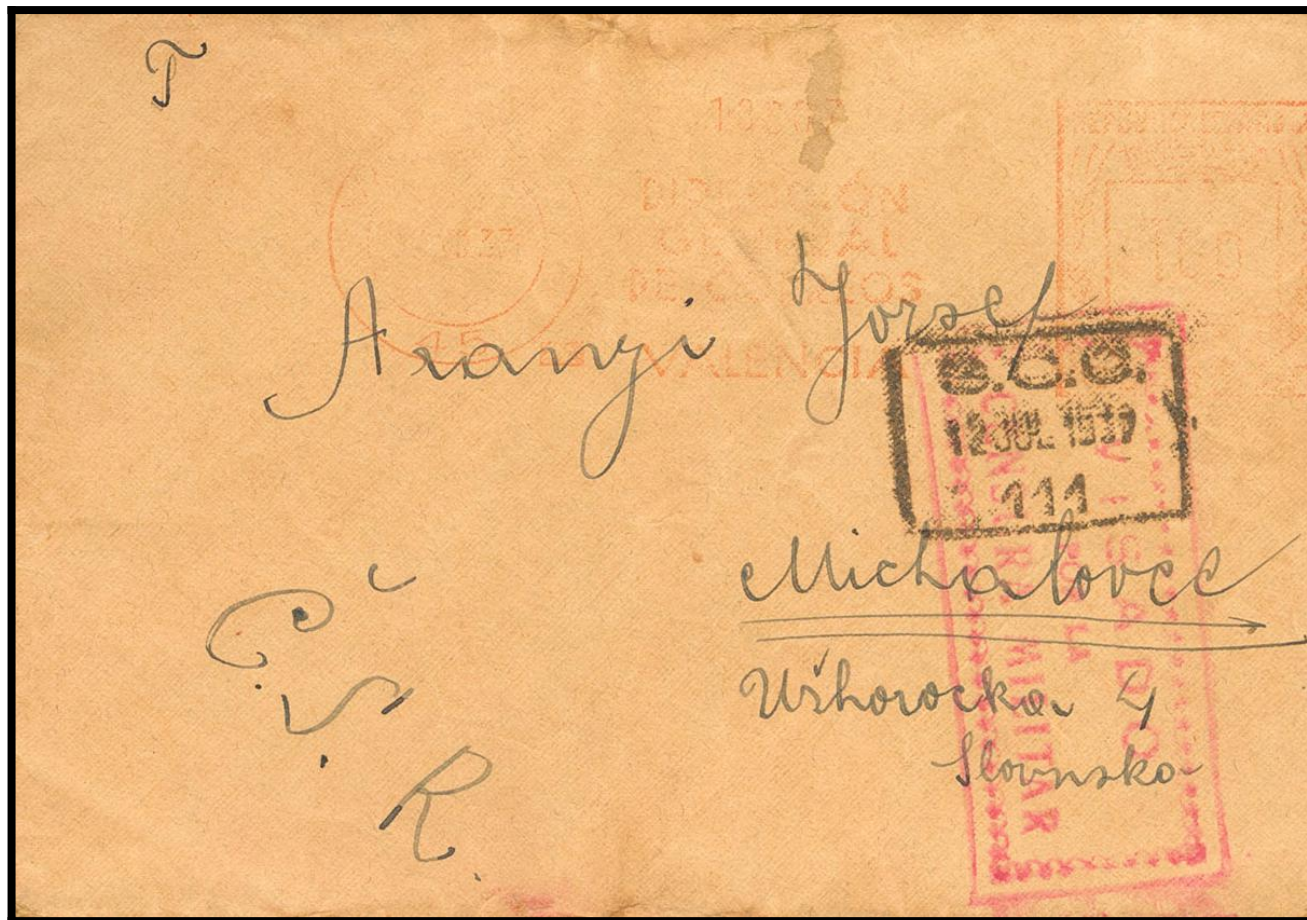 T
DIRECCIÓN
GENERAL
DE CORREOS
VALENCIA
100
Aranyi Jozsef
S.C.O.
12 JUL 1937
111
VISADO
POR LA
CENSURA MILITAR
Michalovce
Užhorocka 4
Slovnsko
Č.S.R